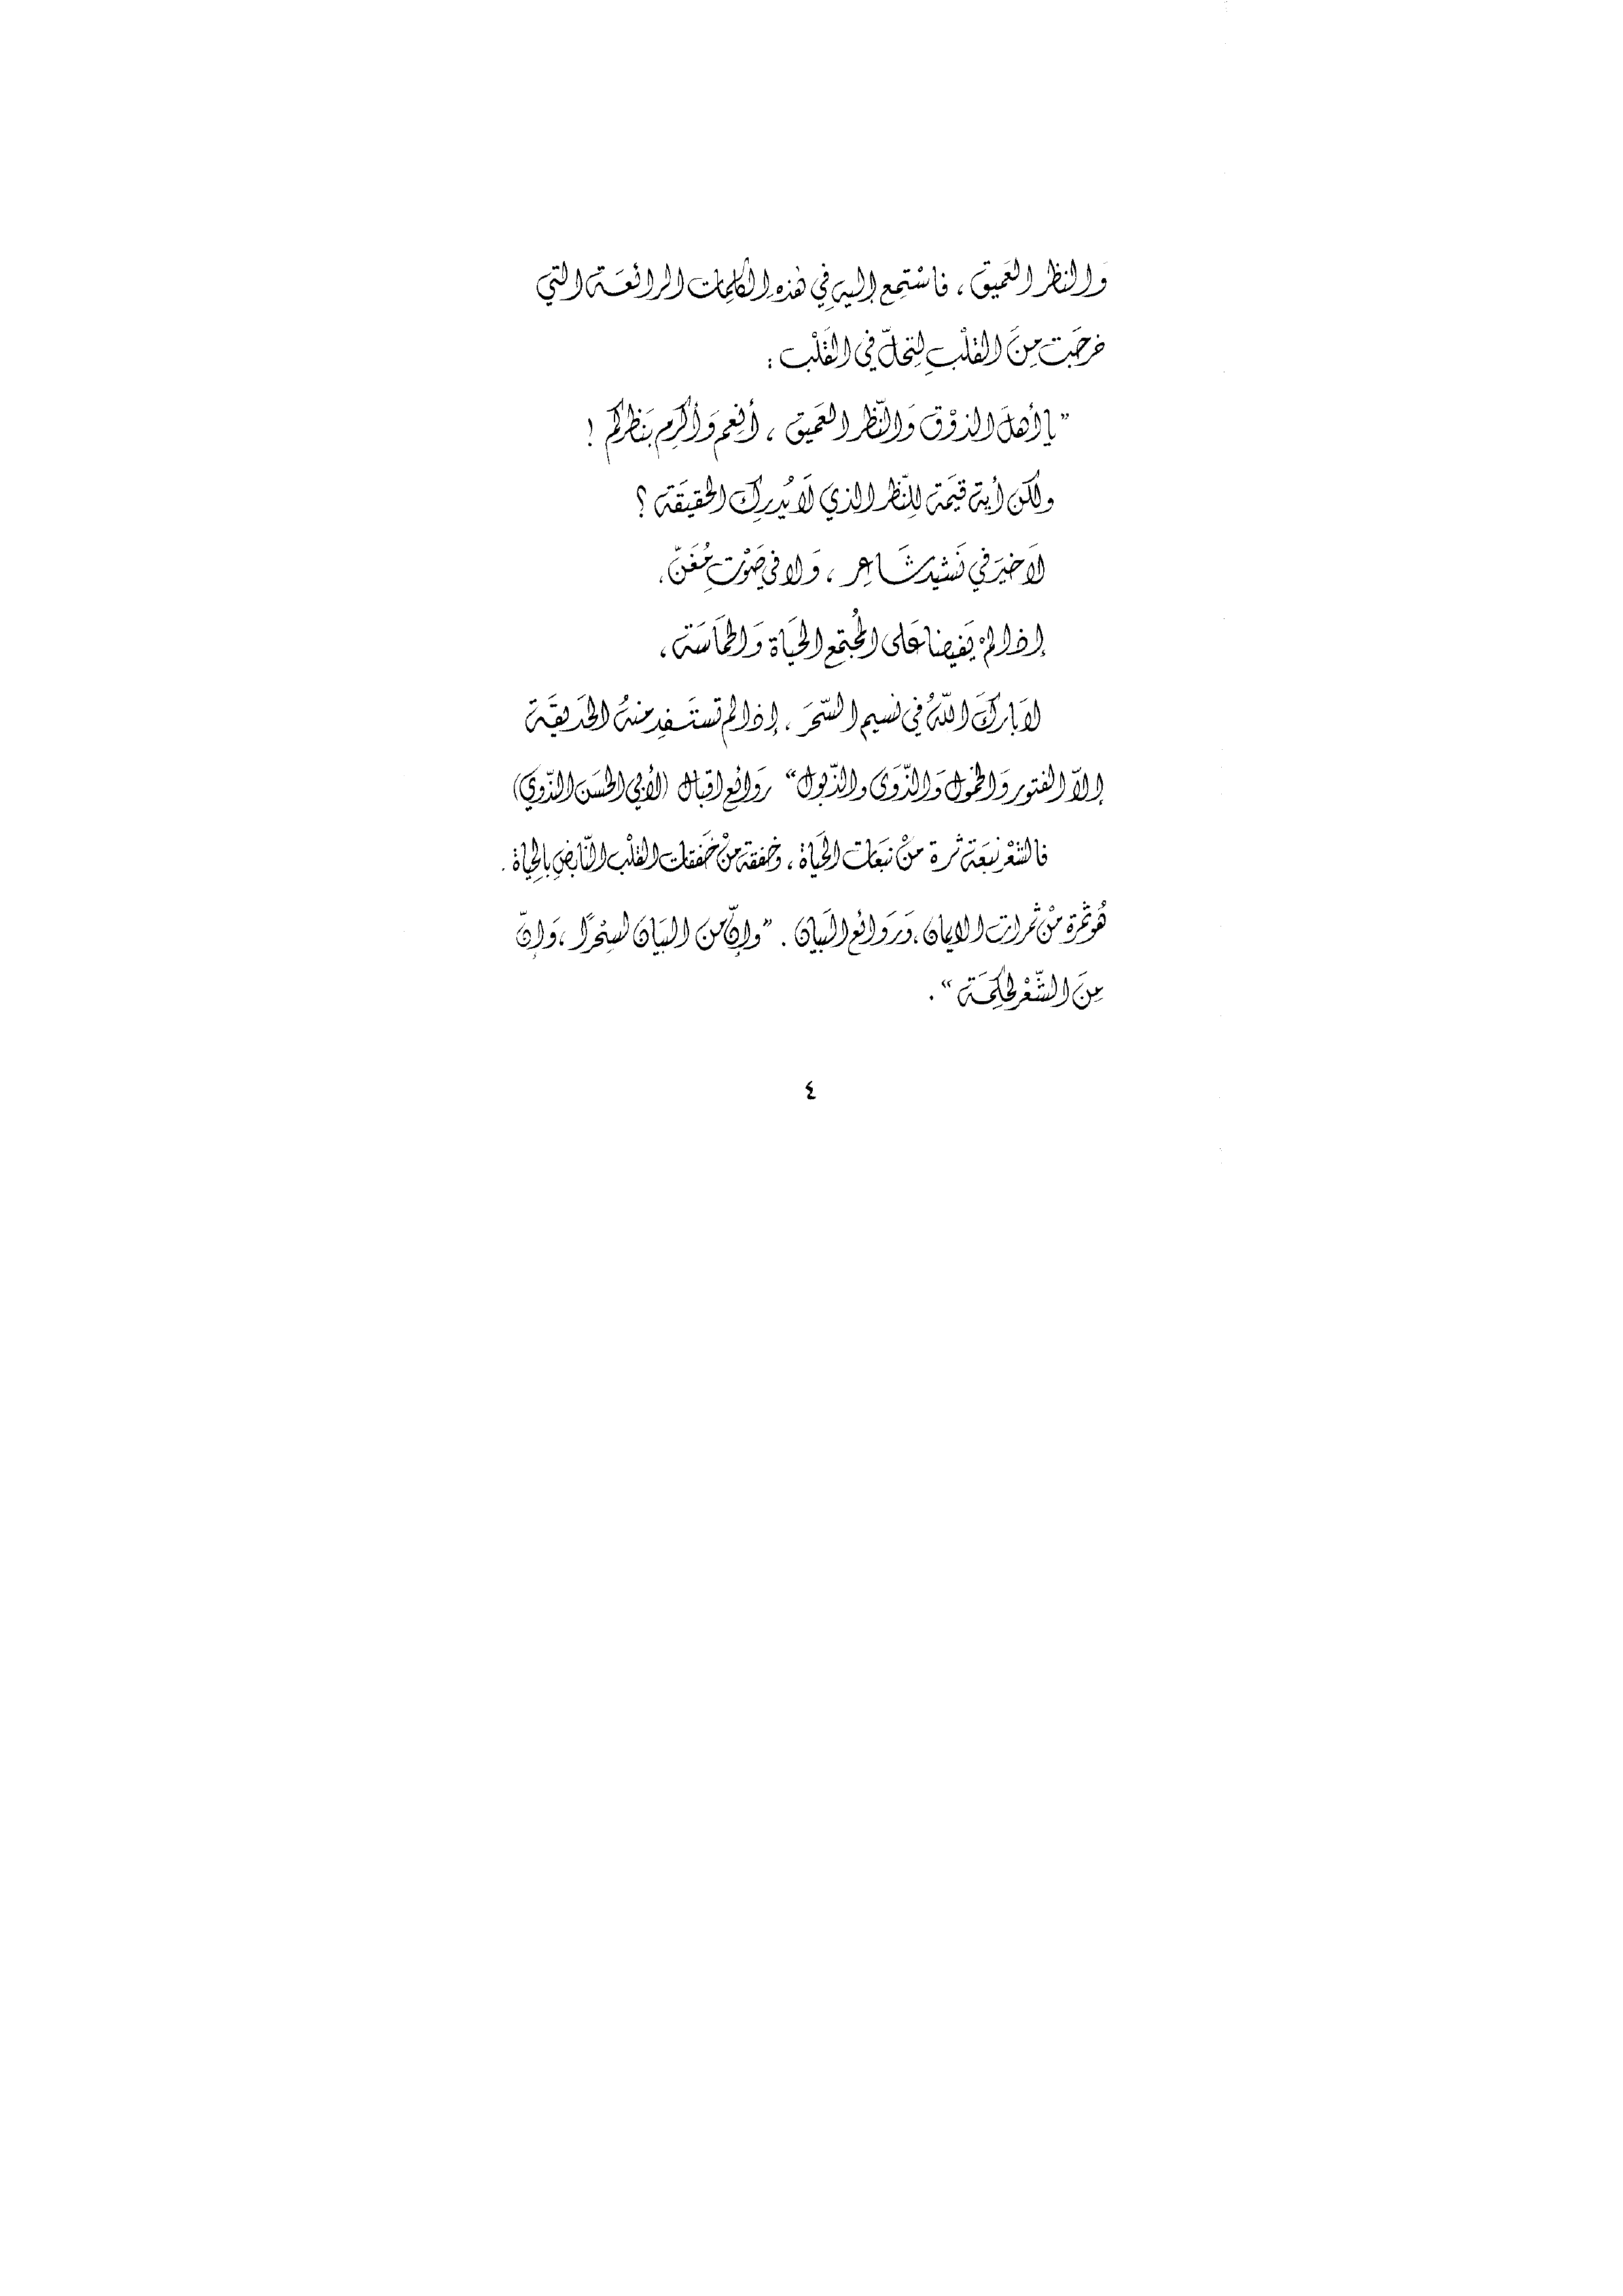 وَالنظر العَميق ، فاسْتمِع إليهِ في هٰذهِ الكلِمات الرائعَة التي
خرجَت مِنَ القلْبِ لتحلّ في القَلْب :
" يا أهلَ الذوْق وَالنّظر العَميق ، أنعِم وَأكرِم بنَظركم !
ولكن أية قيَمة للِنّظر الذي لَا يُدرِك الحقيقَة ؟
لَا خيرَ في نَشيد شَاعِر ، وَلا في صَوْتِ مُغَنّ ،
إذا لمْ يَفيضا عَلى المُجتمع الحيَاة وَالحمَاسَة ،
لا بَارَكَ اللّهُ في نسيم السّحَر ، إذا لم تستَفِد منهُ الحَديقَة
إلاّ الفتور وَالخمول وَالذّوَى والذّبول " رَوائع اقبال (لأبي الحسَن النّدوي)
فالشعْر نبعَة ثرة منْ نبَعَات الحَياة ، وخفقة منْ خَفقات القلْب النّابضِ بالحِياة .
هُو ثمرة منْ ثمرات الايمان ، وَرَوائع البَيان . " وإنّ من البَيَان لسِحْرًا ، وَإنّ
مِنَ الشّعْر لحِكمَة " .
٤